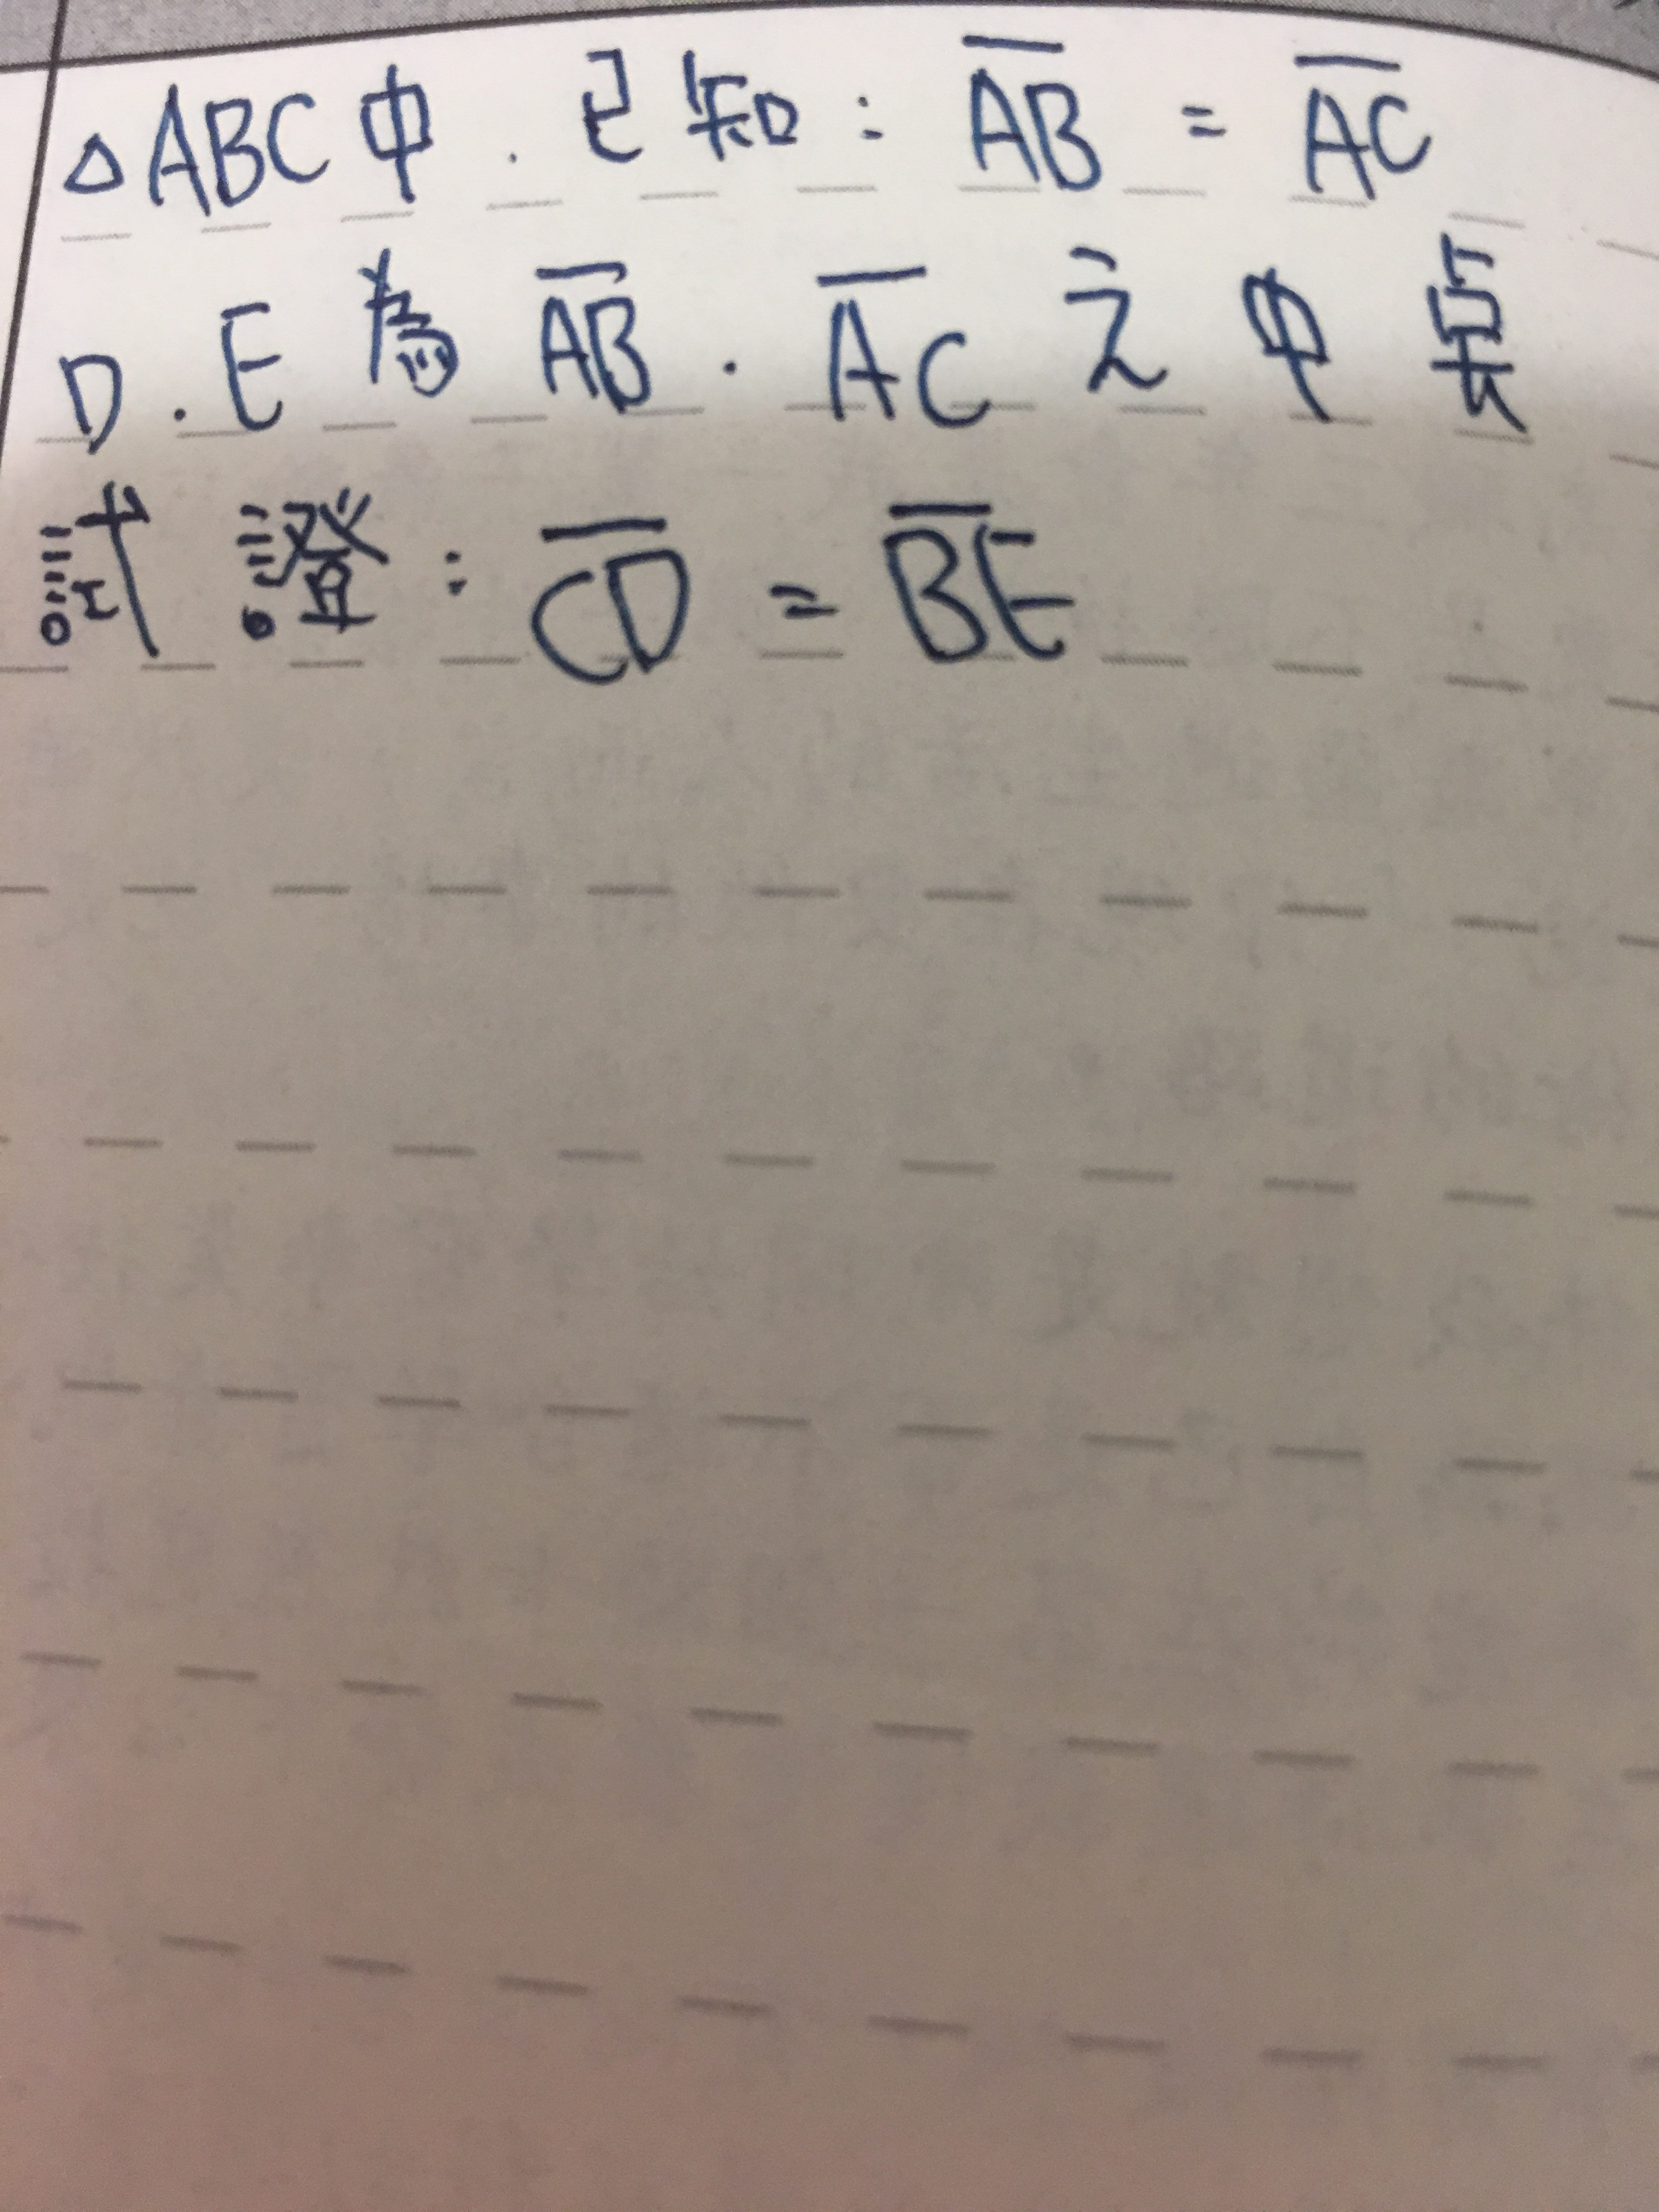 △ABC中.已知:A̅B̅ = A̅C̅
D.E為A̅B̅.A̅C̅之中點
試證:C̅D̅ = B̅E̅